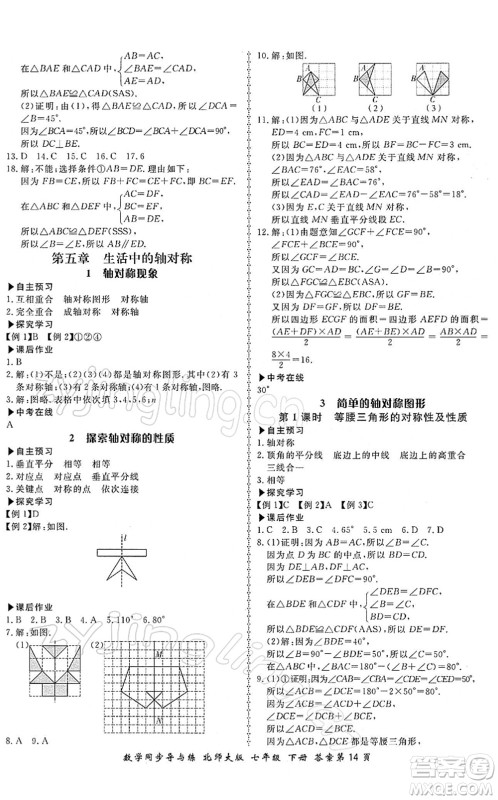 AB=AC,
在△BAE 和△CAD 中,{∠BAE=∠CAD,
AE=AD,
所以△BAE≌△CAD(SAS).
(2)证明:由(1)得△BAE≌△CAD,所以∠DCA=∠B=45°.
因为∠BCA=45°,所以∠BCD=∠BCA+∠DCA=90°,
所以DC⊥BE.
13.D 14.C 15.C 16.C 17.6
18.解:不能;选择条件①AB=ED.理由如下:
因为FB=CE,所以FB+FC=CE+FC,即BC=EF.
AB=ED,
在△ABC 和△DEF 中,{BC=EF,
AC=DF,
所以△ABC≌△DEF(SSS).
所以∠B=∠E,所以AB∥ED.
第五章 生活中的轴对称
1 轴对称现象
▶自主预习
1.互相重合 轴对称图形 对称轴
2.完全重合 成轴对称 对称轴
▶探究学习
【例1】B 【例2】①②④
▶课后作业
1.B
2.解:(1)不是;(2)(3)(4)都是轴对称图形,(2)有3条对称轴;(3)有5条对称轴;(4)有4条对称轴.
3.解:对称轴的条数依次为:3,4,5,6;n
▶中考在线
A
2 探索轴对称的性质
▶自主预习
1.垂直平分 相等 相等
2.对应点 对应点 垂直平分线
3.关键点 对称的点 依次连接
▶探究学习
【例1】D
【例2】解:如图.
l
▶课后作业
1.B 2.B 3.A 4.A 5.110° 6.80°
7.解:如图.
(1) (2)
M
N
8.A 9.A
10.解:如图.
A A A
B B B
C C C
(1) (2) (3)
11.解:(1)因为△ABC 与△ADE 关于直线MN 对称,
ED=4 cm,FC=1 cm,
所以BC=ED=4 cm,所以BF=BC-FC=3 cm.
(2)因为△ABC 与△ADE 关于直线MN 对称,
∠BAC=76°,∠EAC=58°,
所以∠EAD=∠BAC=76°,
所以∠CAD=∠EAD-∠EAC=76°-58°=18°.
(3)直线MN 垂直平分线段EC.理由如下:
因为E,C关于直线MN 对称,
所以直线MN 垂直平分线段EC.
12.解:(1)由题意知∠GCF=∠BCD=90°,
所以∠GCF-∠ECF=∠BCD-∠ECF,
所以∠GCE=∠BCF.
(2)因为∠GCE=∠BCF,∠G=∠B=90°,GC=BC,
所以△GCE≌△BCF.
(3)因为△GCE≌△BCF,所以GE=BF.
因为GE=DE,所以DE=BF.
所以四边形ECGF 的面积=四边形AEFD 的面积=
(AE+DF)×AD/2=(AE+BE)×AD/2=AB×AD/2=
8×4/2=16.
▶中考在线
30°
3 简单的轴对称图形
第1课时 等腰三角形的对称性及性质
▶自主预习
1.轴对称
2.顶角的平分线 底边上的中线 底边上的高
三线合一
3.相等
▶探究学习
【例1】C 【例2】C
▶课后作业
1.C 2.B 3.C 4.65° 5.5 cm 6.D 7.B
8.(1)证明:因为AB=AC,所以∠B=∠C.
因为点D 为BC 的中点,所以BD=CD.
因为DE⊥AB,DF⊥AC,
所以∠DEB=∠DFC=90°.
∠DEB=∠DFC,
在△BDE 和△CDF 中,{∠B=∠C,
BD=CD,
所以△BDE≌△CDF(AAS),所以DE=DF.
(2)解:因为∠BDE=40°,
所以∠B=90°-∠BDE=50°,
所以∠C=50°,所以∠BAC=80°.
9.(1)证明:因为AB=AC,所以∠ECB=∠DBC.
在△DBC 与△ECB 中,
BD=CE,
{∠DBC=∠ECB,
BC=CB,
所以△DBC≌△ECB(SAS).
数学同步导与练 北师大版 七年级 下册 答案第14页